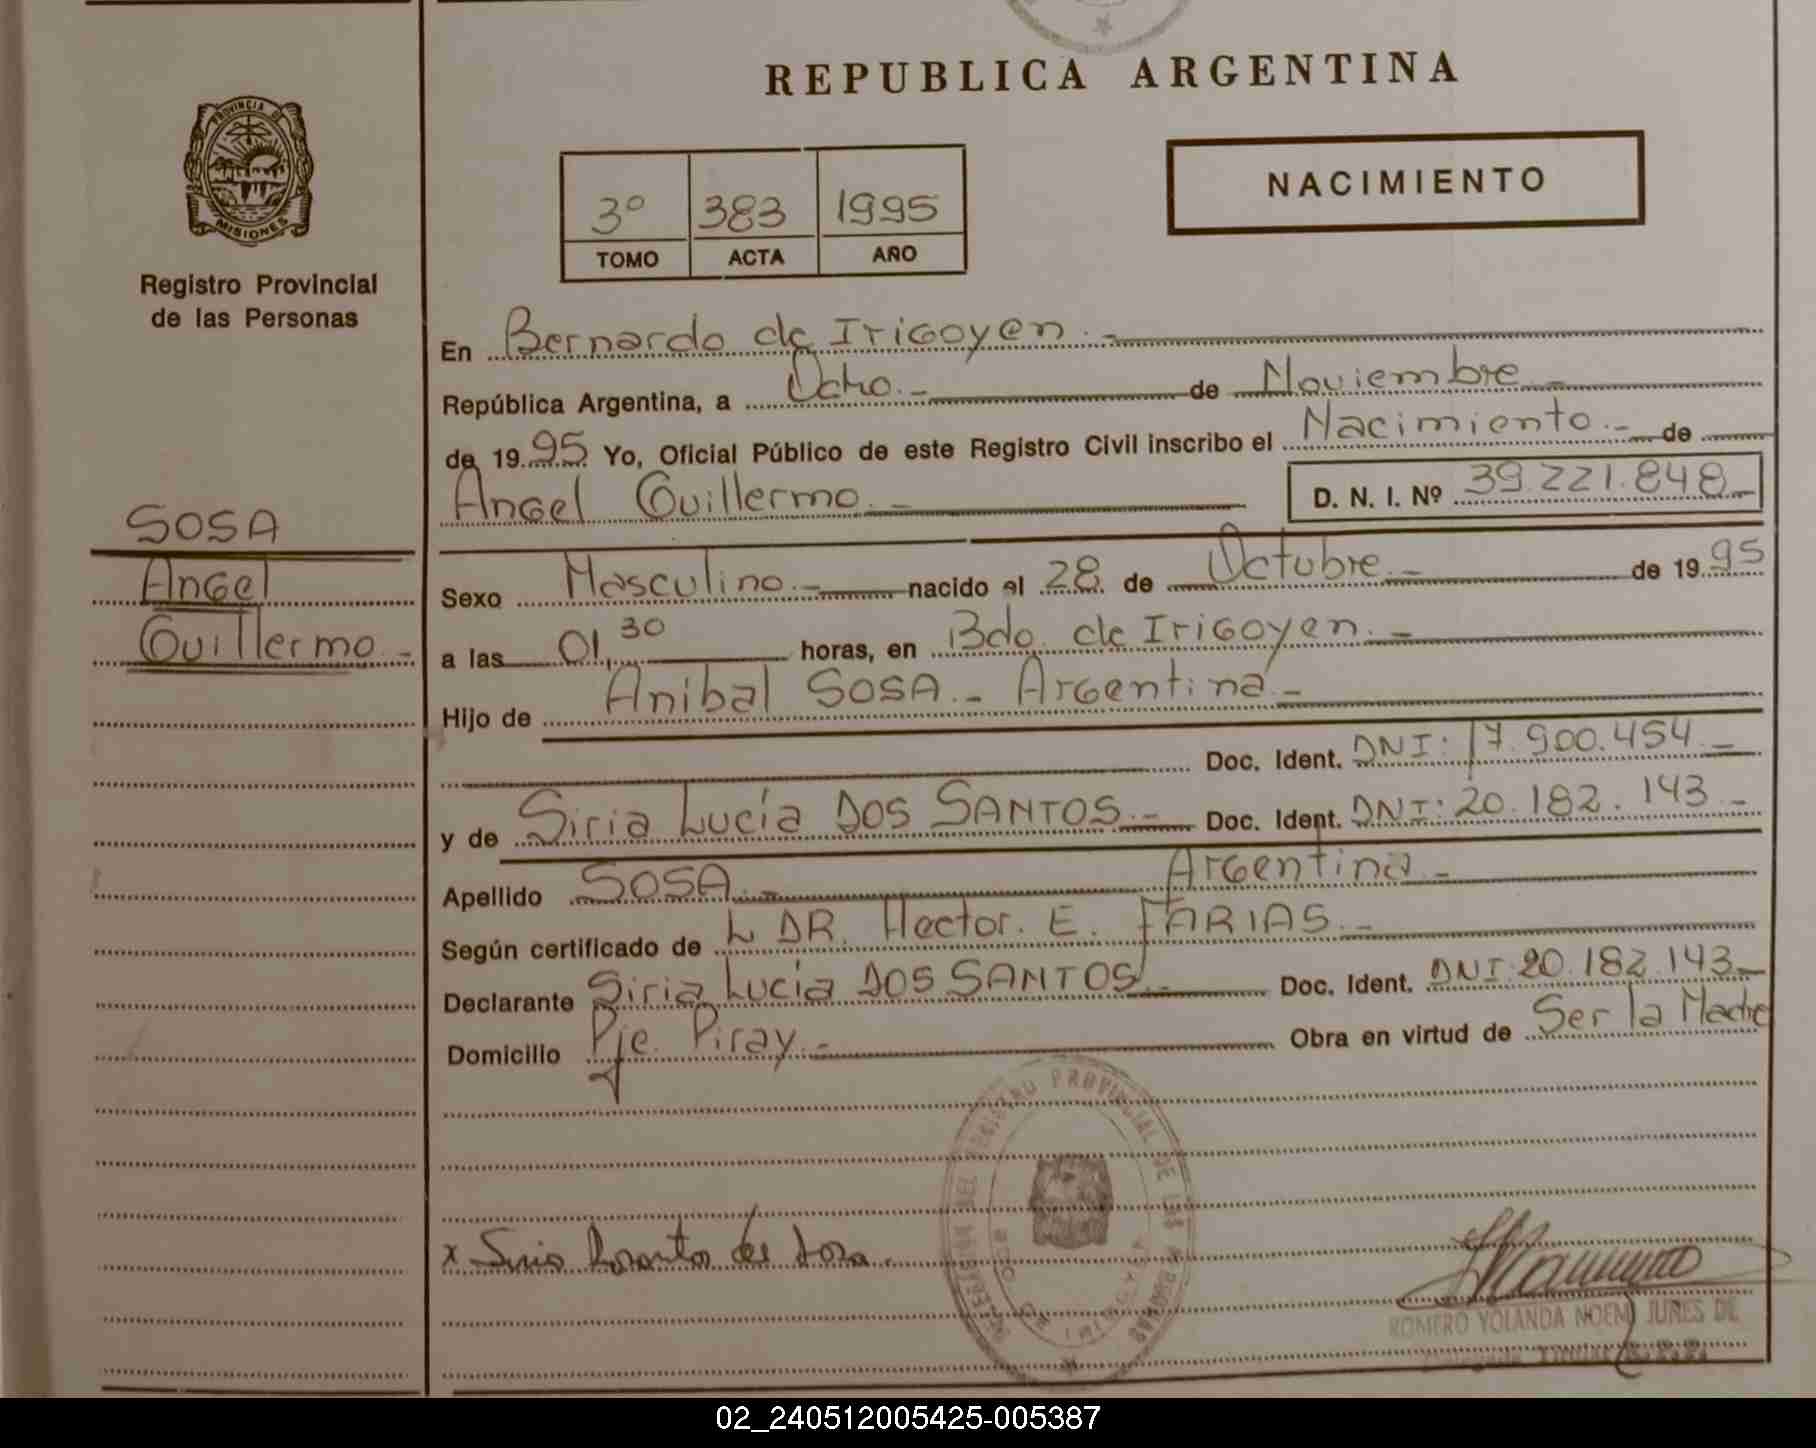 REPUBLICA ARGENTINA
PROVINCIA DE
MISIONES
Registro Provincial
de las Personas
NACIMIENTO
3º 383 1995
TOMO ACTA AÑO
En Bernardo de Irigoyen.-
República Argentina, a Ocho.- de Noviembre.-
de 1995 Yo, Oficial Público de este Registro Civil inscribo el Nacimiento.- de
Angel Guillermo.- D. N. I. Nº 39.221.848.-
SOSA
Angel
Guillermo.-
Sexo Masculino.- nacido el 28 de Octubre.- de 1995
a las 01,30 horas, en Bdo. de Irigoyen.-
Hijo de Anibal SOSA.- Argentina.-
Doc. Ident. DNI: 17.900.454.-
y de Siria Lucía DOS SANTOS.- Doc. Ident. DNI: 20.182.143.-
Apellido SOSA.- Argentina.-
Según certificado de L DR. Hector. E. FARIAS.-
Declarante Siria Lucía DOS SANTOS.- Doc. Ident. DNI: 20.182.143.-
Domicilio Pje. Piray.- Obra en virtud de Ser la Madre
REGISTRO PROVINCIAL DE LAS
x
ROMERO YOLANDA NOEMI JURES DE
02_240512005425-005387